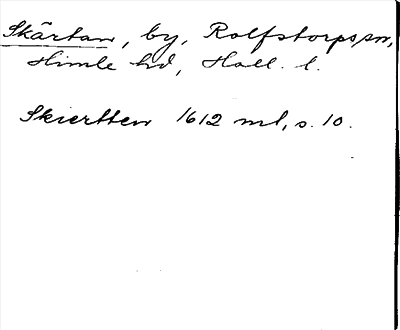 Skärtan, by, Rolfstorps sn,
Himle hd, Hall. l.
Skiertten 1612 ml, s. 10.